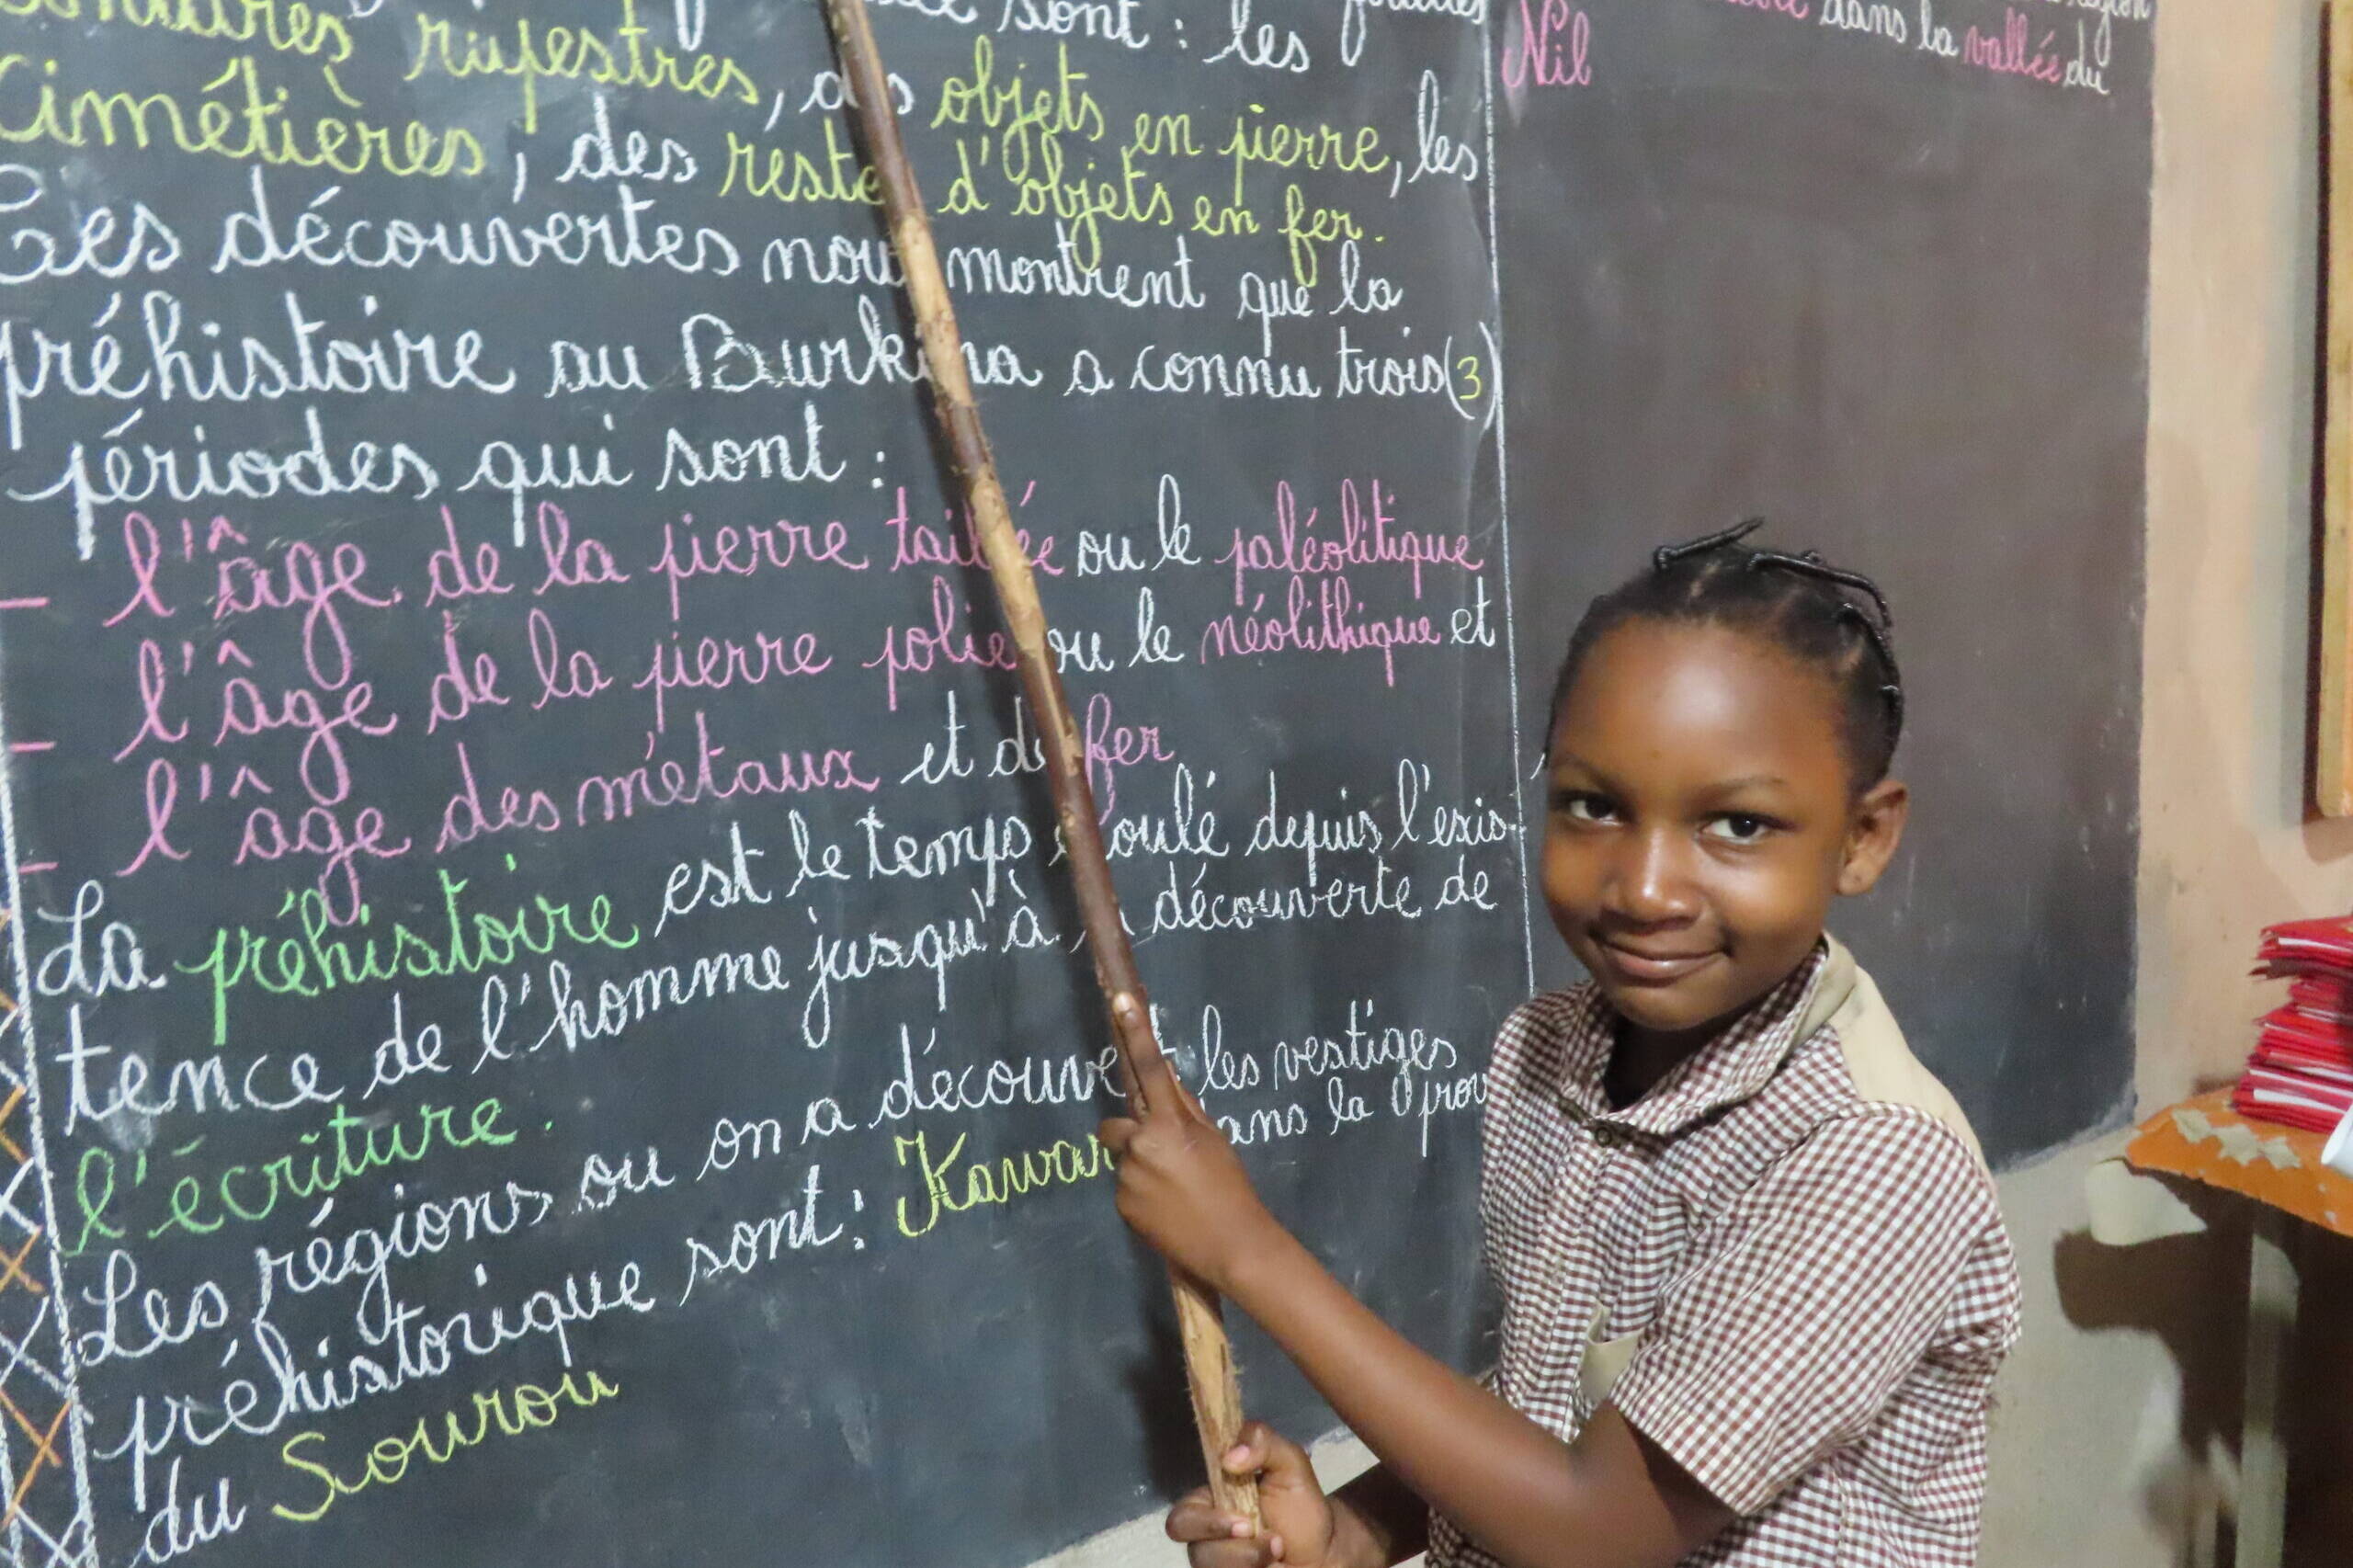 sont : les
rupestres, des objets en pierre, les
cimétières, des reste d'objets en fer.
Ces découvertes nous montrent que la
préhistoire au Burkina a connu trois (3)
périodes qui sont :
- l'âge de la pierre taillée ou le paléolitique
- l'âge de la pierre polie ou le néolithique et
- l'âge des métaux et du fer
La préhistoire est le temps écoulé depuis l'exis-
tence de l'homme jusqu'à la découverte de
l'écriture.
Les régions ou on a découvert les vestiges
préhistorique sont : dans la prov
du Sourou
dans la vallée du
Nil